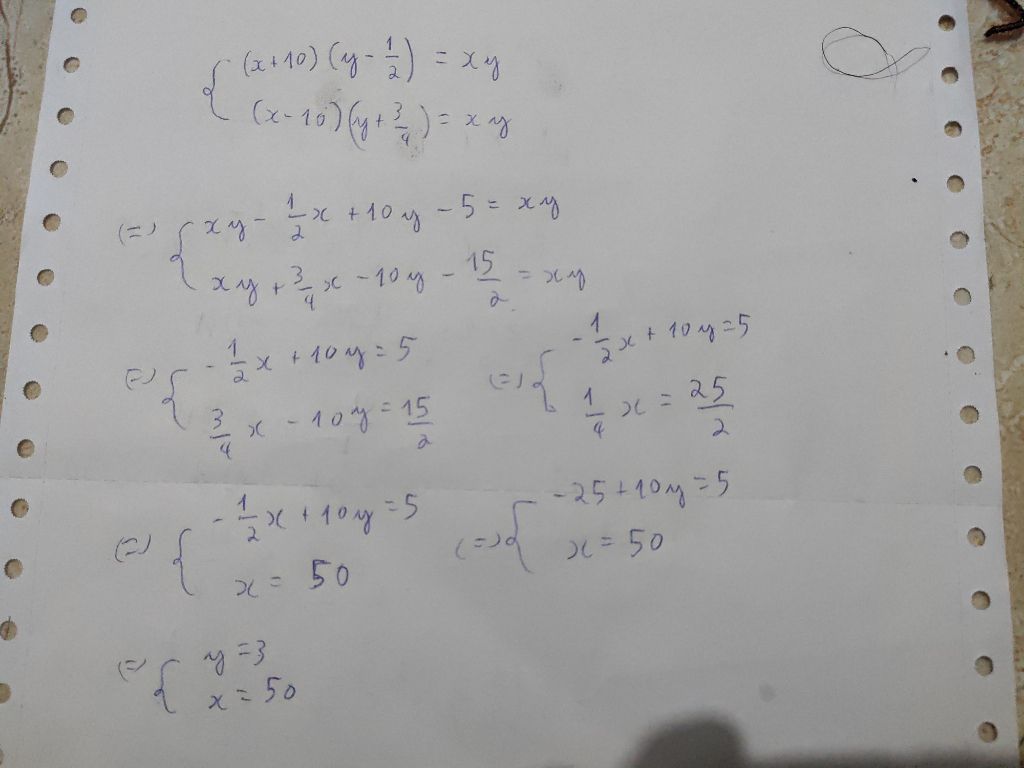 { (x+10)(y-1/2) = xy
(x-10)(y+3/4) = xy
(=) { xy - 1/2x + 10y - 5 = xy
xy + 3/4x - 10y - 15/2 = xy
(=) { -1/2x + 10y = 5
3/4x - 10y = 15/2
(=) { -1/2x + 10y = 5
1/4x = 25/2
(=) { -1/2x + 10y = 5
x = 50
(=) { -25 + 10y = 5
x = 50
(=) { y = 3
x = 50